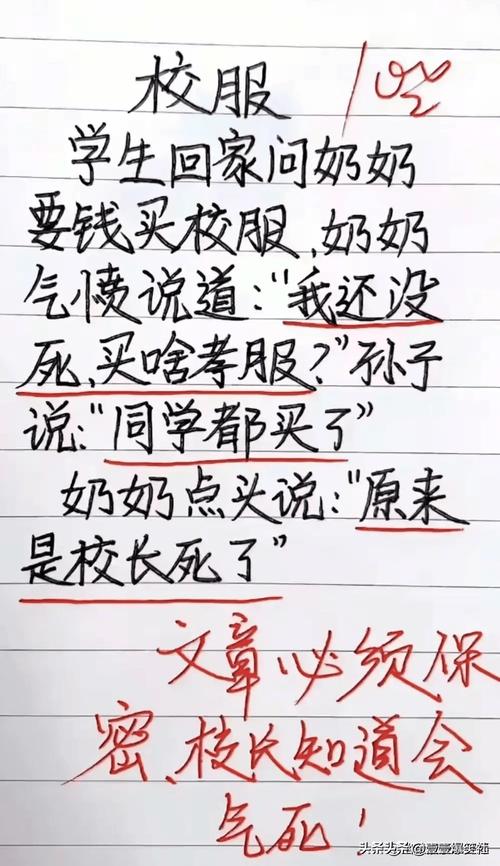 校服
学生回家问奶奶
要钱买校服,奶奶
气愤说道:"我还没
死,买啥孝服?"孙子
说:"同学都买了"
奶奶点头说:"原来
是校长死了"
文章必须保
密,校长知道会
气死!
头条头条@壹壹爆笑社